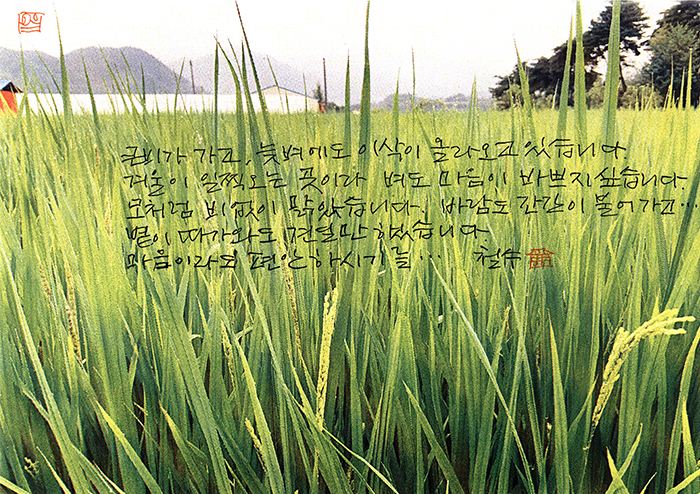 큰비가 가고, 늦벼에도 이삭이 올라오고 있습니다.
겨울이 일찍 오는 곳이라 벼도 마음이 바쁘지 싶습니다.
모처럼 비 없이 맑았습니다. 바람도 간간이 불어가고…
볕이 따가와도 견딜만 했습니다
마음이라도 편안하시기를… 철수